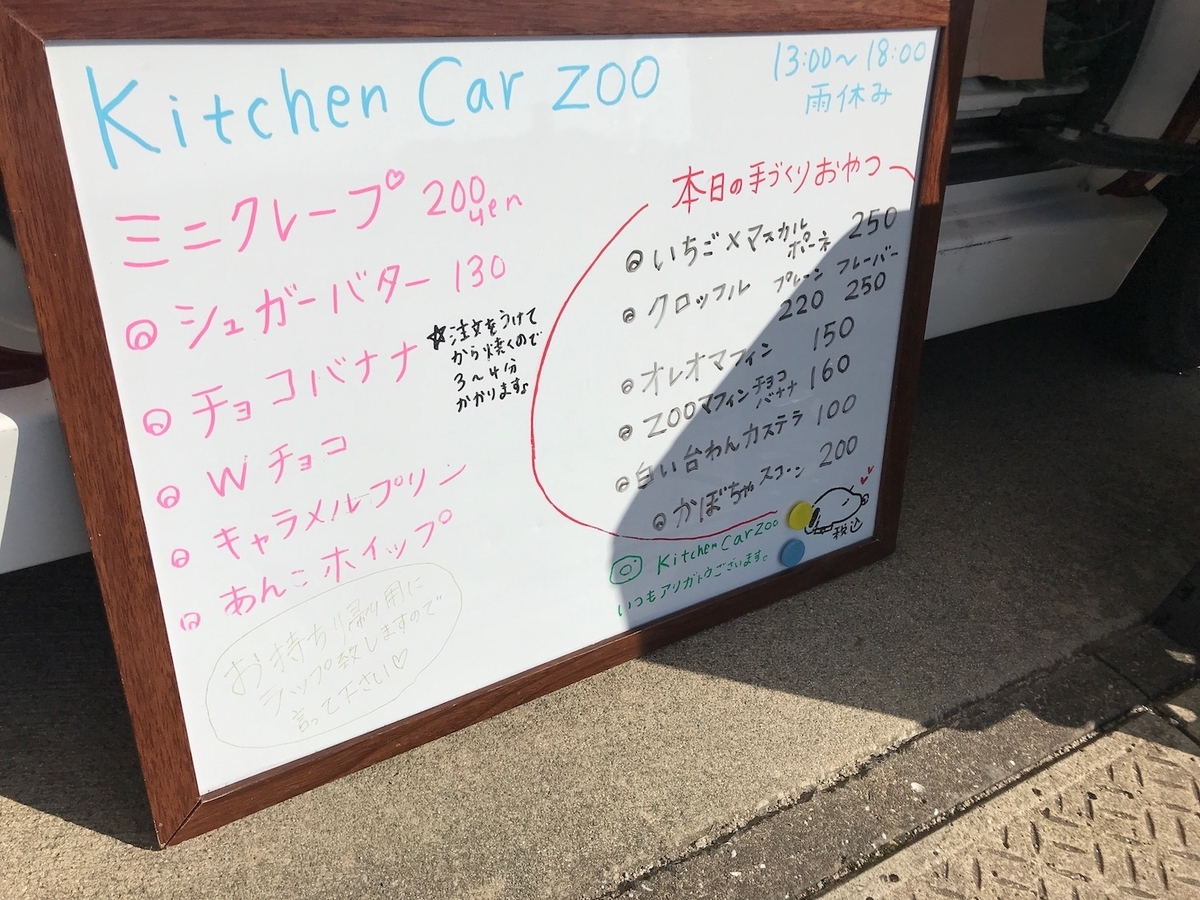 Kitchen Car ZOO
13:00～18:00
雨休み
ミニクレープ♡ 200yen
◎ シュガーバター 130
◎ チョコバナナ
◎ Wチョコ
◎ キャラメルプリン
◎ あんこホイップ
☆注文をうけて
から焼くので
3～4分
かかります♪
お持ち帰り用に
ラップ致しますので
言って下さい♡
本日の手づくりおやつ
◎ いちご×マスカルポーネ 250
◎ クロッフル プレーン 220 フレーバー 250
◎ オレオマフィン 150
◎ ZOOマフィンチョコバナナ 160
◎ 白い台わんカステラ 100
◎ かぼちゃスコーン 200
税込
Kitchen Car ZOO
いつもアリガトウございます。